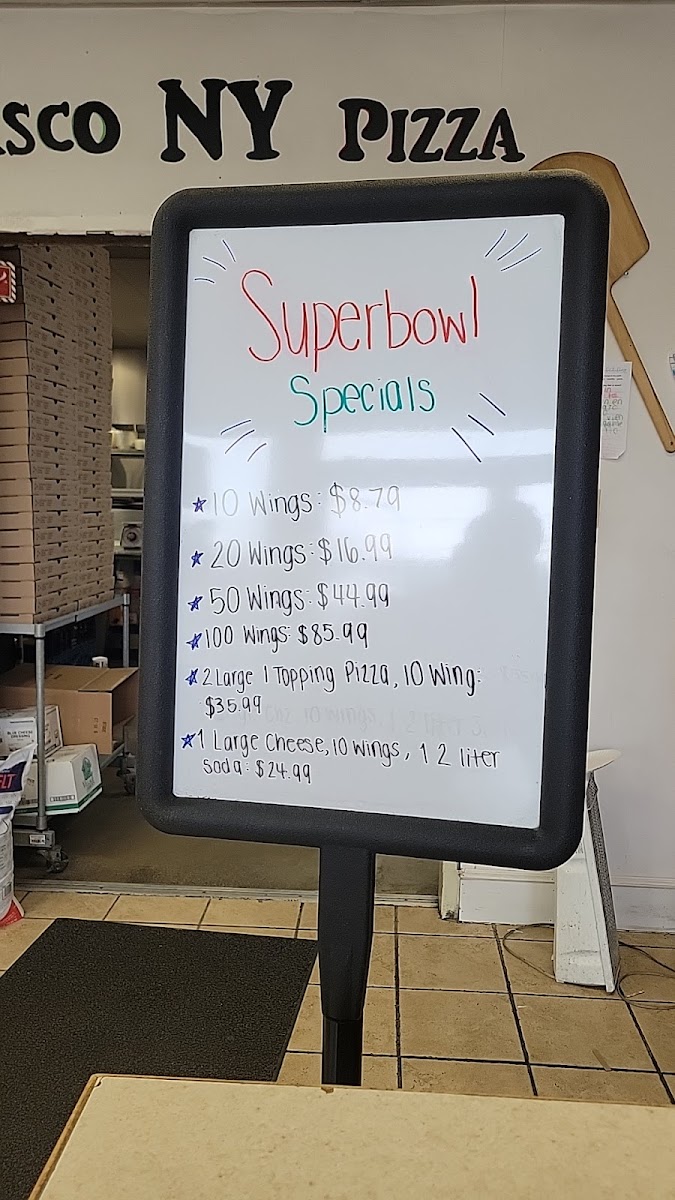 sco NY Pizza
Superbowl
Specials
10 Wings: $8.79
20 Wings: $16.99
50 Wings: $44.99
100 Wings: $85.99
2 Large 1 Topping Pizza, 10 Wing:
$35.99
1 Large Cheese, 10 wings, 1 2 liter
Soda: $24.99